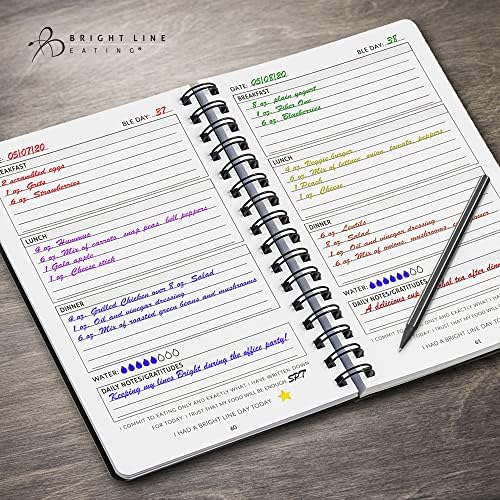 BRIGHT LINE
EATING®
BLE DAY: 37
05/07/20
BREAKFAST
2 scrambled eggs
1 oz. Grits
6 oz. Strawberries
LUNCH
4 oz. Hummus
6 oz. Mix of carrots, snap peas, bell peppers
1 Gala apple
1 oz. Cheese stick
DINNER
4 oz. Grilled Chicken over 8 oz. Salad
1 oz. Oil and vinegar dressing
6 oz. Mix of roasted green beans and mushrooms
WATER:
DAILY NOTES/GRATITUDES
Keeping my lines Bright during the office party!
I COMMIT TO EATING ONLY AND EXACTLY WHAT I HAVE WRITTEN DOWN
FOR TODAY. I TRUST THAT MY FOOD WILL BE ENOUGH. SPT
I HAD A BRIGHT LINE DAY TODAY
60
BLE DAY: 38
DATE: 05/08/20
BREAKFAST
8 oz. plain yogurt
1 oz. Fiber One
6 oz. Blueberries
LUNCH
4 oz. Veggie burger
6 oz. Mix of lettuce, onion, tomato, peppers
1 Peach
1 oz. Cheese
DINNER
6 oz. Lentils
8 oz. Salad
1 oz. Oil and vinegar dressing
6 oz. Mix of onions, mushrooms,
WATER:
DAILY NOTES/GRATITUDES
A delicious cup tea after dinner
I COMMIT TO EATING ONLY AND EXACTLY WHAT
FOR TODAY. I TRUST THAT MY FOOD WILL
I HAD A BRIGHT LINE DAY TODAY
61